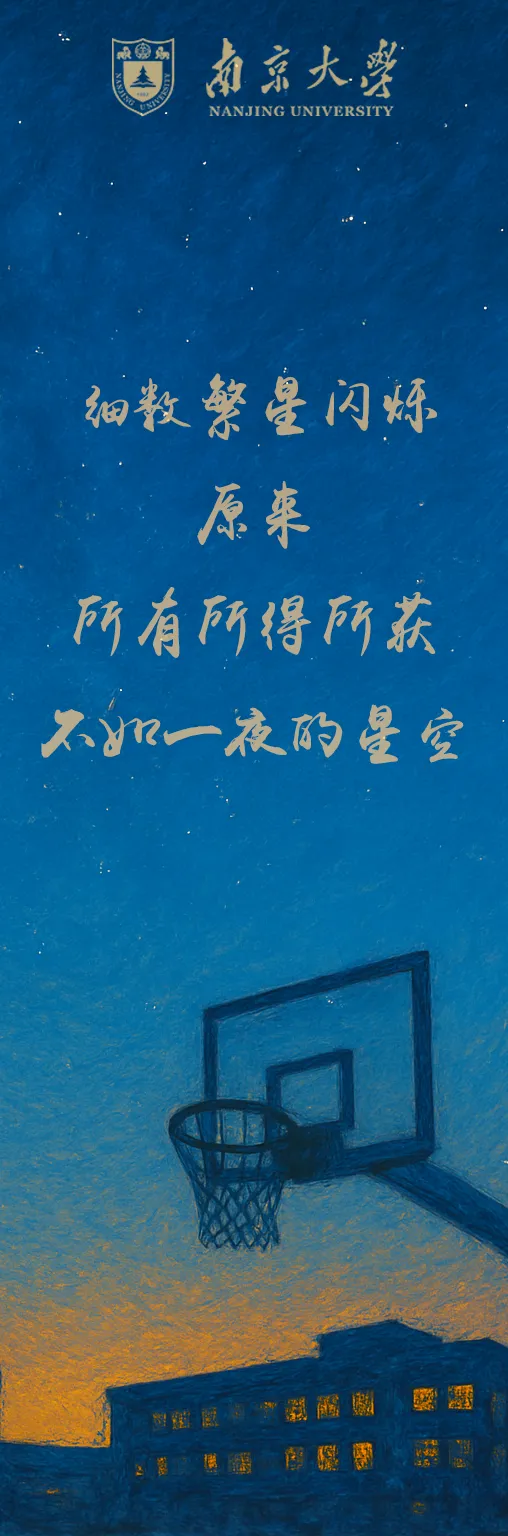 南京大學
NANJING UNIVERSITY
NANJING UNIVERSITY
1902
细数繁星闪烁
原来
所有所得所获
不如一夜的星空